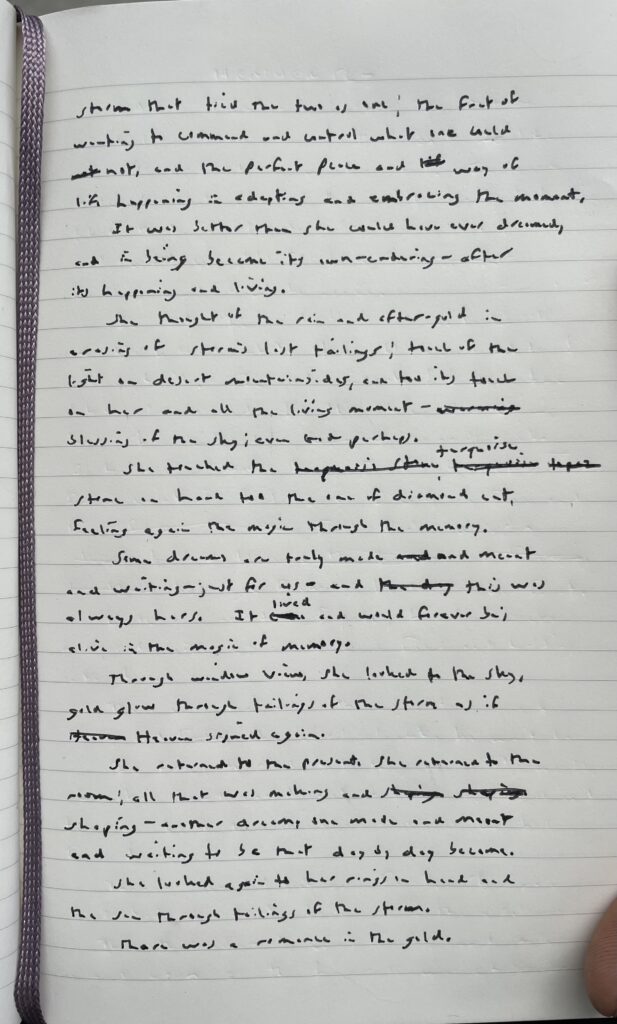 storm that tied the two as one; the fact of
wanting to command and control what one could
not, and the perfect place and way of
life happening in adapting and embracing the moment.
It was better than she could have ever dreamed,
and in being become its own-enduring-after
its happening and living.
She thought of the rain and after-gold in
erasing of storm's last tailings; touch of the
light on desert mountainsides, and too its touch
on her and all the living moment-
blessing of the sky; even God perhaps.
She touched the turquoise
stone on hand too the one of diamond cut,
feeling again the magic through the memory.
Some dreams are truly made and meant
and waiting-just for us- and this was
always hers. It lived and would forever be,
alive in the magic of memory.
Through window view, she looked to the sky,
gold glow through tailings of the storm as if
Heaven signed again.
She returned to the present. She returned to the
room; all that was making and
shaping-another dream, one made and meant
and waiting to be that day by day become.
She looked again to her rings on hand and
the sun through tailings of the storm.
There was a romance in the gold.